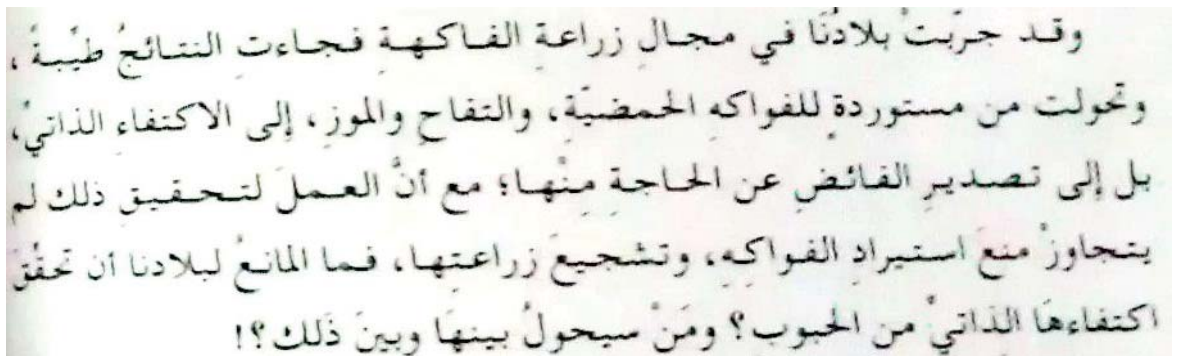 وقد جرّبتْ بلادُنَا في مجالِ زراعةِ الفاكهةِ فجاءتِ النتائجُ طيِّبةً ،
وتحولت من مستوردةٍ للفواكهِ الحمضيّةِ، والتفاحِ والموزِ، إلى الاكتفاءِ الذاتيِّ،
بل إلى تصديرِ الفائضِ عن الحاجةِ مِنْها؛ مع أنَّ العملَ لتحقيقِ ذلك لم
يتجاوزْ منعَ استيرادِ الفواكِهِ، وتشجيعَ زراعتِها، فما المانعُ لبلادنا أن تحقِّقَ
اكتفاءهَا الذاتيَّ من الحبوب؟ ومَنْ سيحولُ بينهَا وبينَ ذَلك؟!